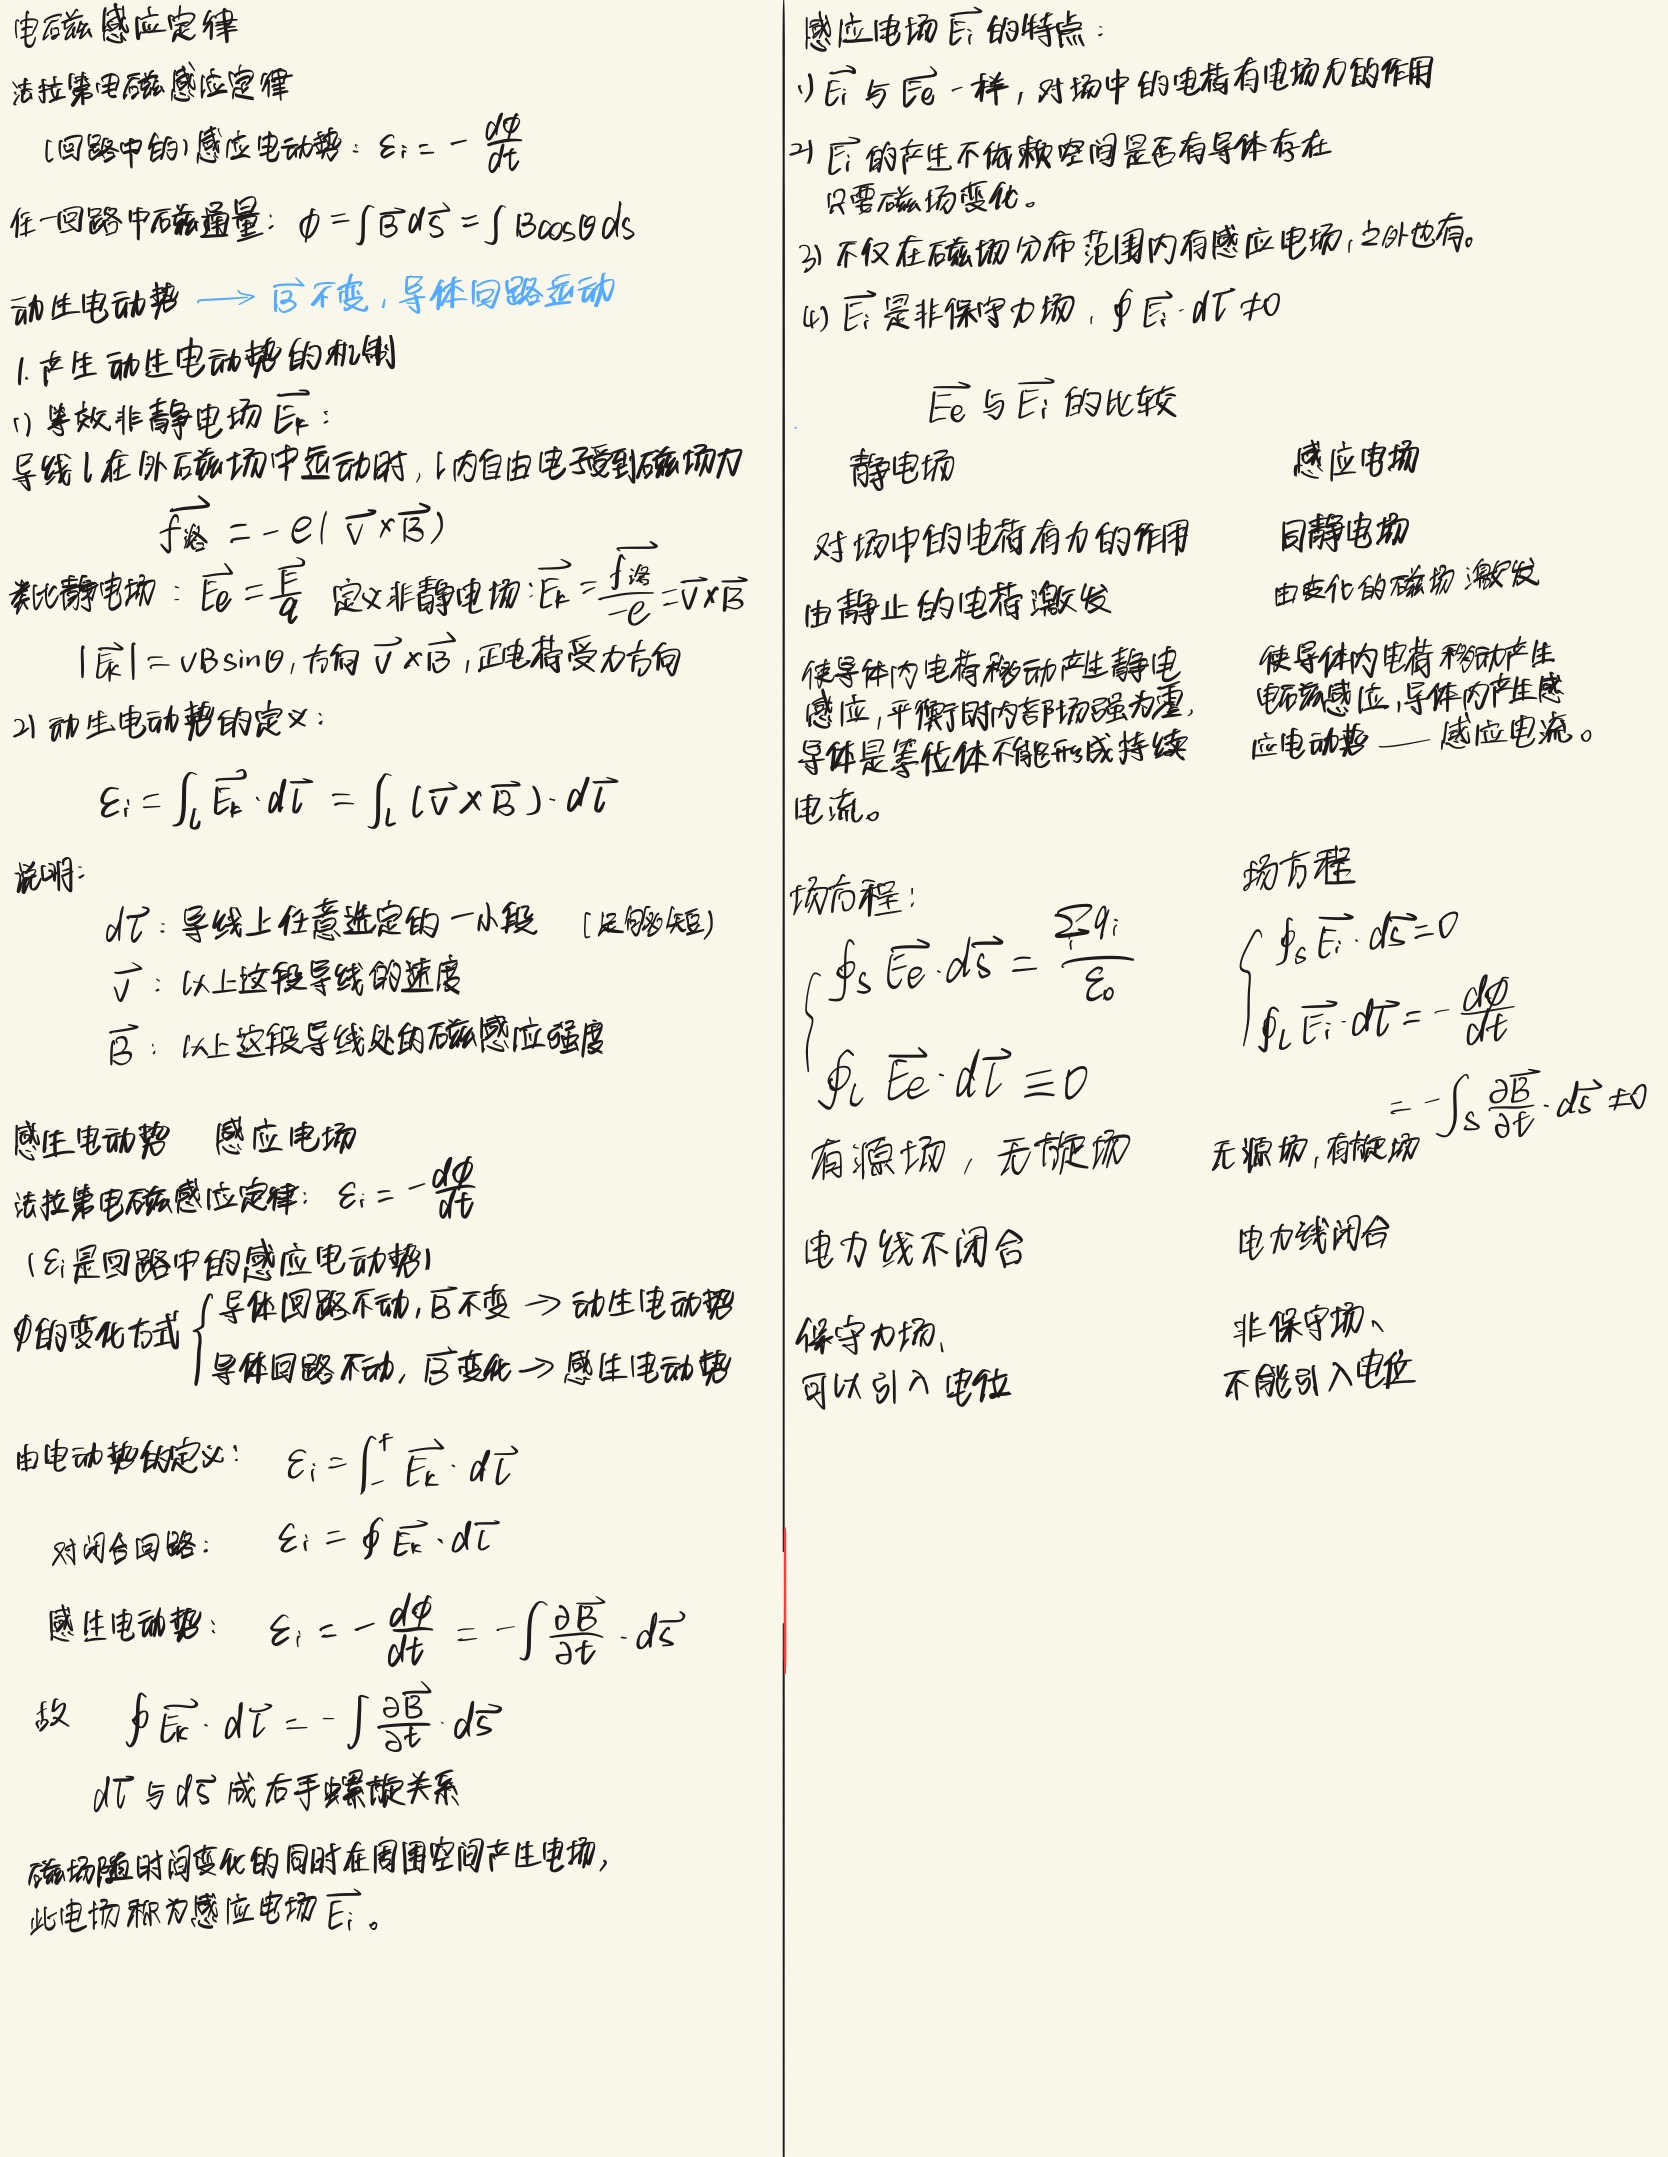 电磁感应定律
法拉第电磁感应定律
(回路中的)感应电动势: εᵢ = - dφ/dt
任一回路中磁通量: φ = ∫B⃗ds⃗ = ∫Bcosθds
动生电动势 → B⃗不变,导体回路运动
1.产生动生电动势的机制
1) 等效非静电场E⃗k:
导线l在外磁场中运动时,l内自由电子受到磁场力
f⃗洛 = -e(v⃗×B⃗)
类比静电场: E⃗e = F⃗/q 定义非静电场: E⃗k = f⃗洛/-e = v⃗×B⃗
|E⃗k| = vBsinθ,方向v⃗×B⃗,正电荷受力方向
2) 动生电动势的定义:
εᵢ = ∫L E⃗k·dl⃗ = ∫L (v⃗×B⃗)·dl⃗
说明:
dl⃗: 导线上任意选定的一小段 (足够短)
v⃗: 以上这段导线的速度
B⃗: 以上这段导线处的磁感应强度
感生电动势 感应电场
法拉第电磁感应定律: εᵢ = - dφ/dt
(εᵢ是回路中的感应电动势)
φ的变化方式 { 导体回路不动,B⃗不变 → 动生电动势
导体回路不动,B⃗变化 → 感生电动势
由电动势的定义: εᵢ = ∫₋⁺ E⃗k·dl⃗
对闭合回路: εᵢ = ∮E⃗k·dl⃗
感生电动势: εᵢ = - dφ/dt = -∫ ∂B⃗/∂t·ds⃗
故 ∮E⃗k·dl⃗ = -∫ ∂B⃗/∂t·ds⃗
dl⃗与ds⃗成右手螺旋关系
磁场随时间变化的同时在周围空间产生电场,
此电场称为感应电场E⃗i。
感应电场E⃗i的特点:
1) E⃗i与E⃗e一样,对场中的电荷有电场力的作用
2) E⃗i的产生不依赖空间是否有导体存在
只要磁场变化。
3) 不仅在磁场分布范围内有感应电场,之外也有。
4) E⃗i是非保守力场,∮E⃗i·dl⃗≠0
E⃗e与E⃗i的比较
静电场 感应电场
对场中的电荷有力的作用 同静电场
由静止的电荷激发 由变化的磁场激发
使导体内电荷移动产生静电
感应,平衡时内部场强为零,
导体是等位体不能形成持续
电流。
使导体内电荷移动产生
电磁感应,导体内产生感
应电动势——感应电流。
场方程: 场方程
{ ∮S E⃗e·ds⃗ = Σi qi/ε₀
∮L E⃗e·dl⃗ ≡ 0
{ ∮S E⃗i·ds⃗ = 0
∮L E⃗i·dl⃗ = - dφ/dt
= -∫S ∂B⃗/∂t·ds⃗ ≠0
有源场,无旋场 无源场,有旋场
电力线不闭合 电力线闭合
保守力场、 非保守场、
可以引入电位 不能引入电位